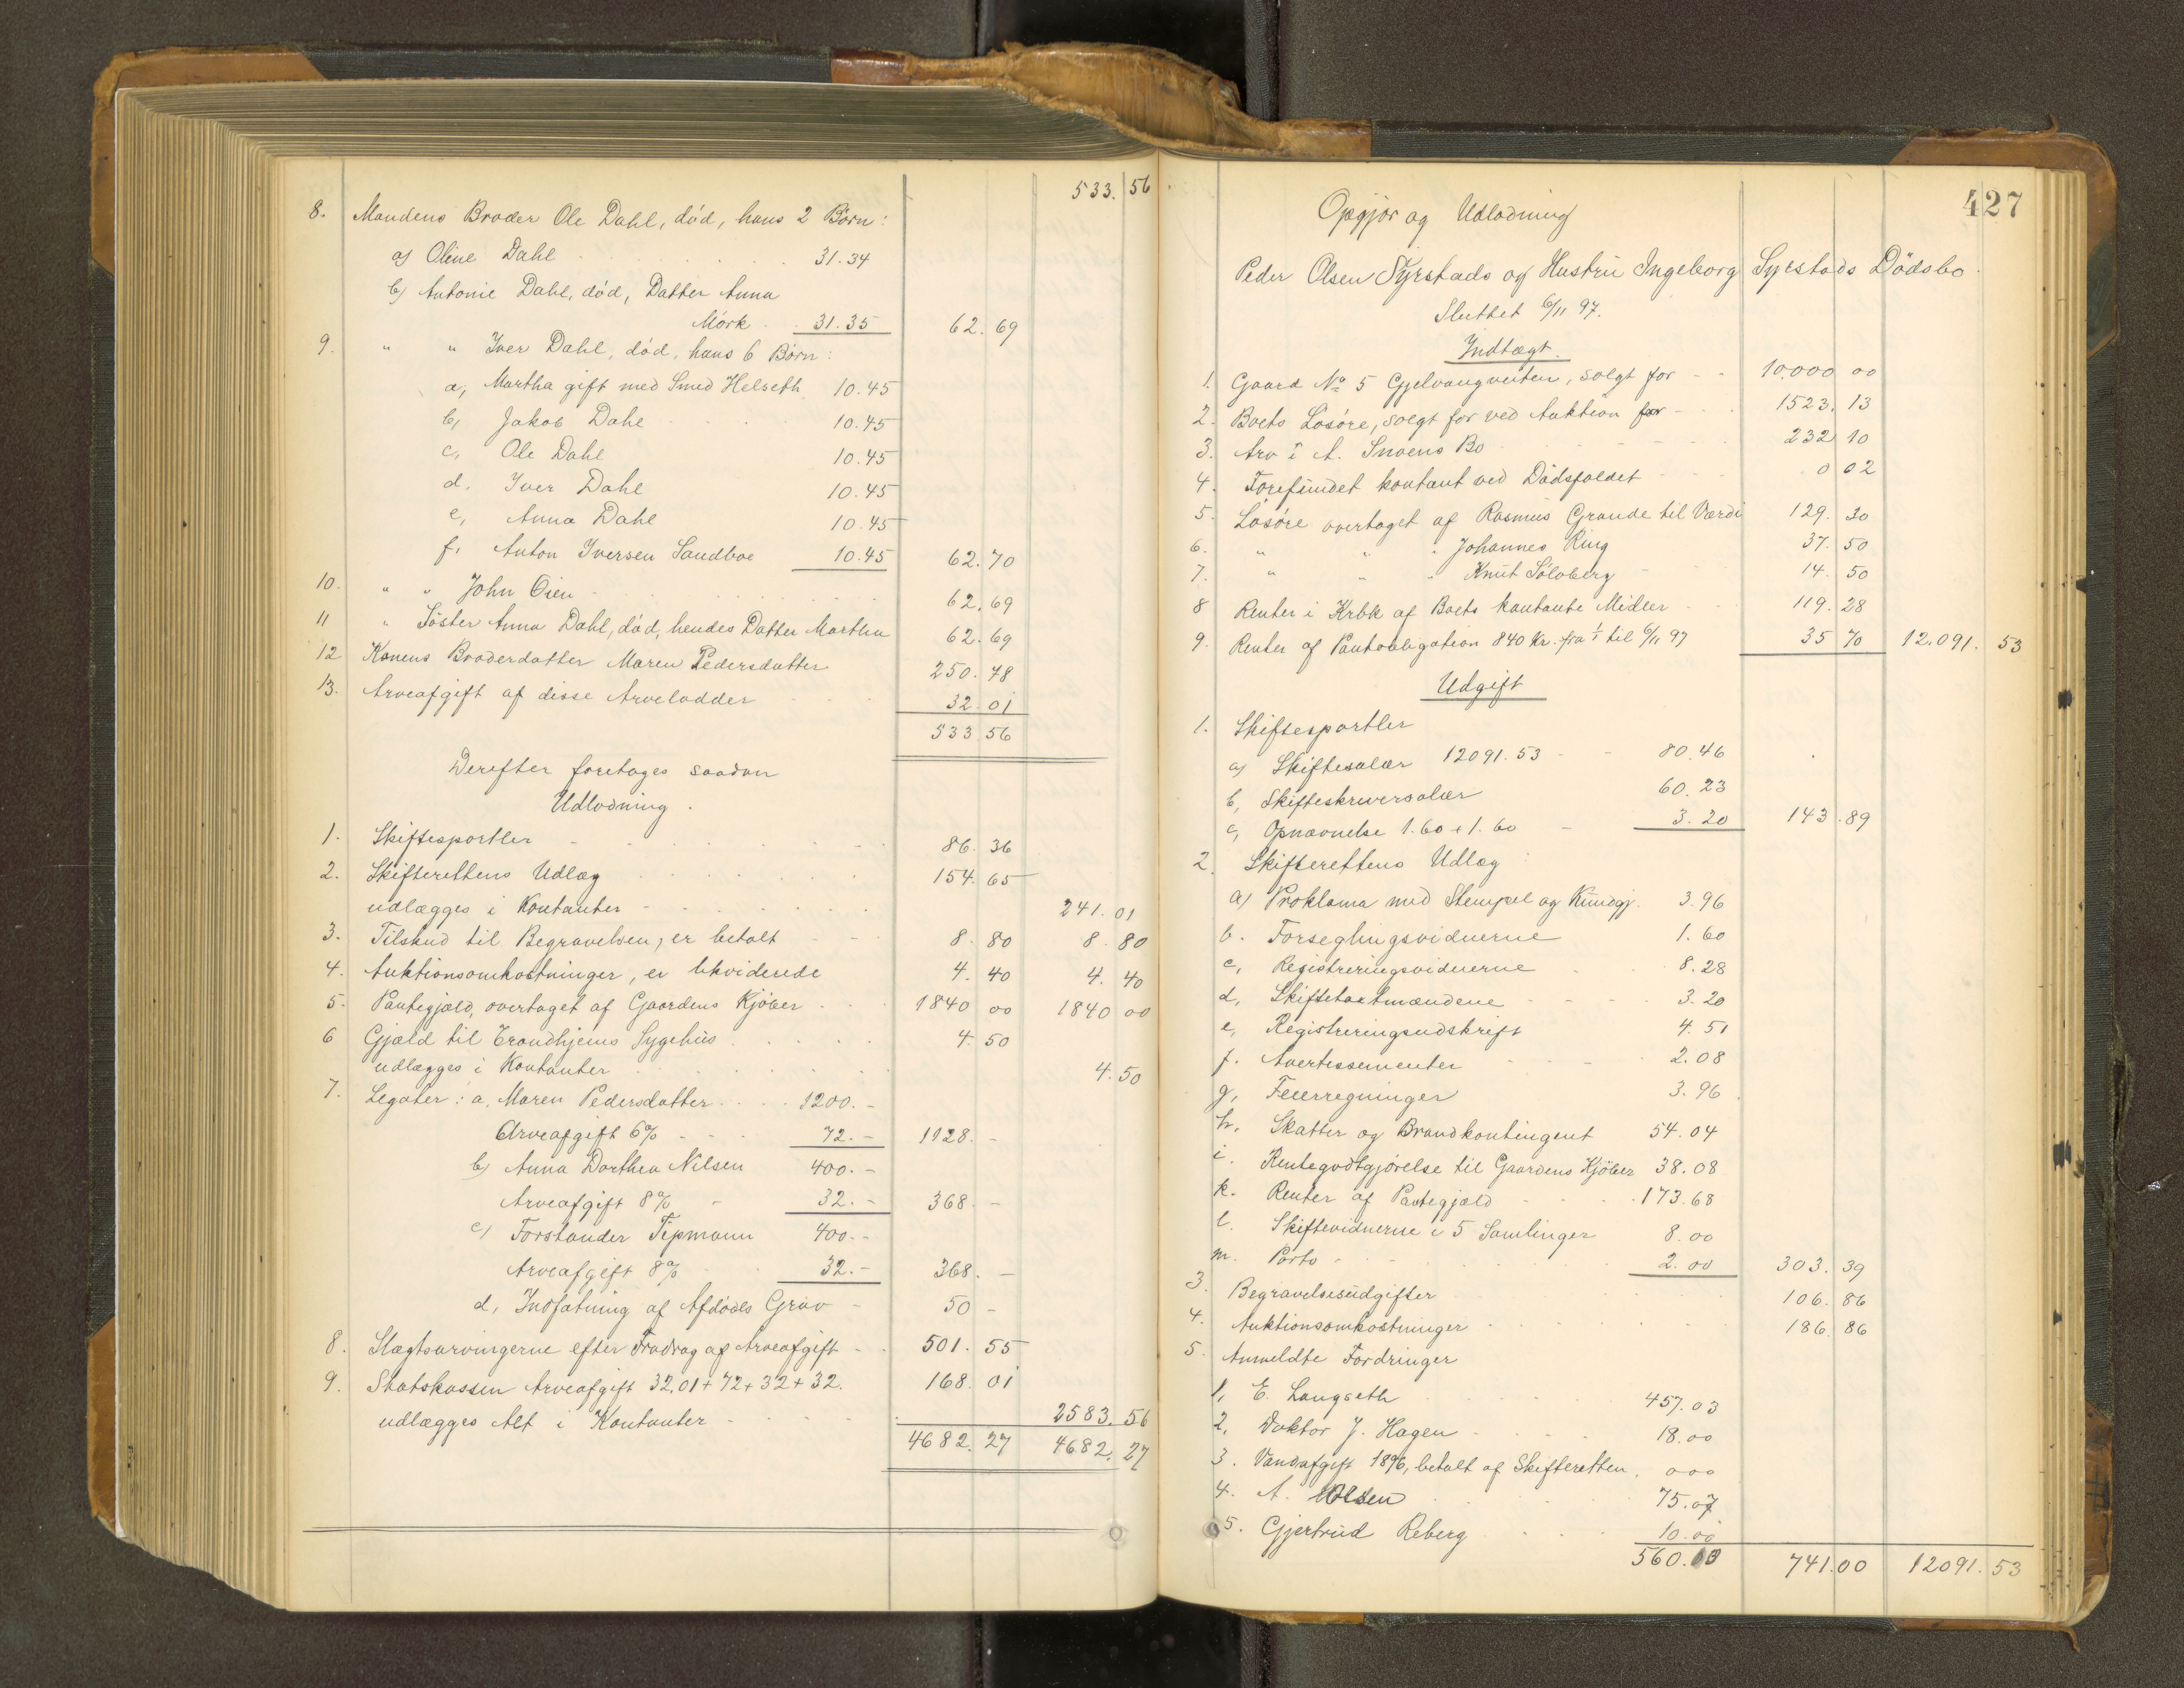 533.56
8. Mandens Broder Ole Dahl, død, hans 2 Børn:
a) Oline Dahl 31.34
b) Antonie Dahl, død, Datter Anna
Mörk 31.35 62.69
9. " " Iver Dahl, død, hans 6 Børn:
a, Martha gift med Smed Helseth 10.45
b, Jakob Dahl 10.45
c, Ole Dahl 10.45
d. Iver Dahl 10.45
e, Anna Dahl 10.45
f, Anton Iversen Sandboe 10.45 62.70
10. " " John Öien 62.69
11 " Söster Anna Dahl, död, hendes Datter Martha 62.69
12 Konens Broderdatter Maren Pedersdatter 250.48
13. Arveafgift af disse Arvelodder 32.01
533 56
Derefter foretages saadan
Udlodning.
1. Skiftesportler 86.36
2. Skifterettens Udlæg 154.65
udlægges i Kontanter 241.01
3. Tilskud til Begravelsen, er betalt 8.80 8.80
4. Auktionsomkostninger, er likviderede 4.40 4.40
5. Pantegjæld, overtaget af Gaardens Kjöber 1840 00 1840 00
6 Gjæld til Trondhjems Sygehus 4.50
udlægges i Kontanter 4.50
7. Legater: a, Maren Pedersdatter 1200.-
Arveafgift 6% 72.- 1128.-
b) Anna Dorthea Nilsen 400.-
Arveafgift 8% 32.- 368.-
c) Forstander Tepmann 400.-
Arveafgift 8% 32.- 368.-
d, Indfatning af Afdödes Grav 50 -
8. Slægtsarvingerne efter Fradrag af Arveafgift 501.55
9. Statskassen Arveafgift 32,01 + 72 + 32 + 32. 168.01
udlægges Alt i Kontanter 2583.56
4682.27 4682.27
427
Opgjør og Udlodning
Peder Olsen Syrstads og Hustru Ingeborg Syrstads Dödsbo.
Sluttet 6/11 97.
Indtægt.
1. Gaard No 5 Gjelvangveiten, solgt for 10,000 00
2. Boets Lösöre, solgt for ved Auktion for 1523.13
3. Arv i A. Snoens Bo 232 10
4. Forefundet kontant ved Dödsfaldet 0 02
5. Lösöre overtaget af Rasmus Grande til Værdi 129.30
6. " " " Johannes Ring 37.50
7. " " " Knut Sölvberg 14.50
8 Renter i Krbk af Boets kontante Midler 119.28
9. Renter af Pantobligation 840 Kr. fra 1/1 til 6/11 97 35 70 12,091.53
Udgift
1. Skiftesportler
a) Skiftesalær 12091.53 80.46
b, Skifteskriversalær 60.23
c, Opnævnelse 1.60 + 1.60 3.20 143.89
2. Skifterettens Udlæg:
a) Proklama med Stempel og Kundgj. 3.96
b. Forseglingsvidnerne 1.60
c, Registreringsvidnerne 8.28
d, Skiftetaxtmændene 3.20
e, Registreringsudskrift 4.51
f. Avertissementer 2.08
g, Feierregninger 3.96
h. Skatter og Brandkontingent 54.04
i. Rentegodtgjörelse til Gaardens Kjöber 38.08
k. Renter af Pantegjæld 173.68
l. Skiftevidnerne i 5 Samlinger 8.00
m. Porto 2.00 303.39
3. Begravelsesudgifter 106.86
4. Auktionsomkostninger 186.86
5. Anmeldte Fordringer
1, E. Langseth 457.03
2. Doktor J. Hagen 18.00
3. Vandafgift 1896, betalt af Skifteretten. 0 00
4. A. Olsen 75.07
5. Gjertrud Reberg 10.00
560.10 741.00 12091.53